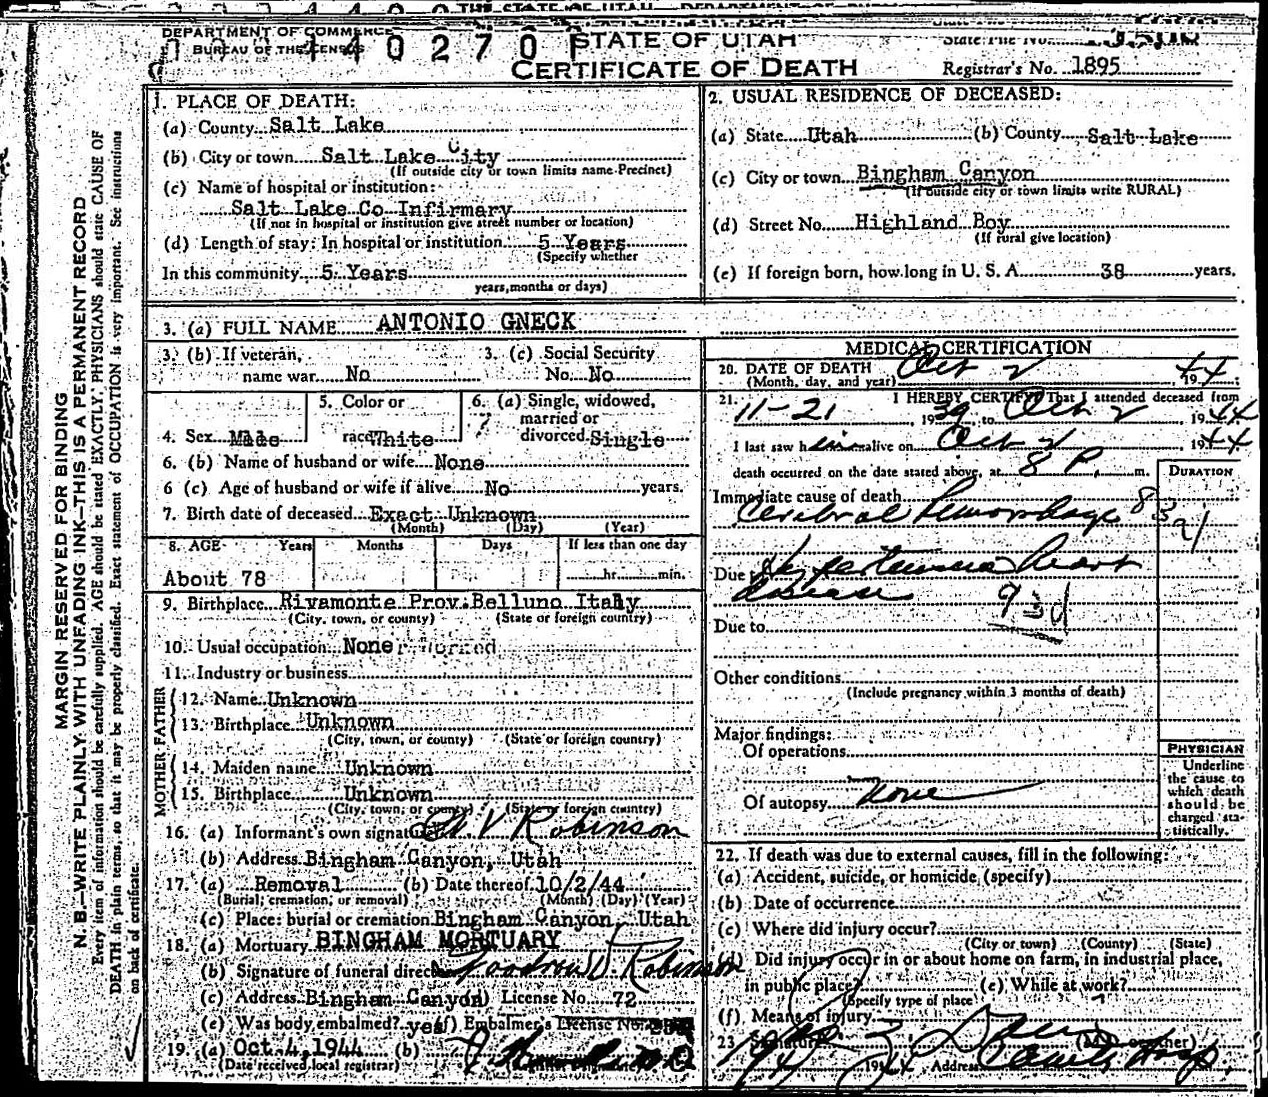 THE STATE OF UTAH
DEPARTMENT OF COMMERCE
BUREAU OF THE CENSUS
440270
STATE OF UTAH
CERTIFICATE OF DEATH
State File No.
Registrar's No. 1895
MARGIN RESERVED FOR BINDING
N. B.—WRITE PLAINLY WITH UNFADING INK—THIS IS A PERMANENT RECORD
Every item of information should be carefully supplied. AGE should be stated EXACTLY. PHYSICIANS should state CAUSE OF
DEATH in plain terms, so that it may be properly classified. Exact statement of OCCUPATION is very important. See instructions
on back of certificate.
1. PLACE OF DEATH:
(a) County Salt Lake
(b) City or town Salt Lake City
(If outside city or town limits name Precinct)
(c) Name of hospital or institution:
Salt Lake Co Infirmary
(If not in hospital or institution give street number or location)
(d) Length of stay: In hospital or institution 5 Years
(Specify whether
In this community 5 Years
years, months or days)
2. USUAL RESIDENCE OF DECEASED:
(a) State Utah (b) County Salt Lake
(c) City or town Bingham Canyon
(If outside city or town limits write RURAL)
(d) Street No. Highland Boy
(If rural give location)
(e) If foreign born, how long in U. S. A. 38 years.
3. (a) FULL NAME ANTONIO GNECK
3. (b) If veteran,
name war No
3. (c) Social Security
No. No
4. Sex Male
5. Color or
race White
6. (a) Single, widowed,
married or
divorced Single
6. (b) Name of husband or wife None
6 (c) Age of husband or wife if alive No years.
7. Birth date of deceased Exact Unknown
(Month) (Day) (Year)
8. AGE Years Months Days If less than one day
About 78 hr. min.
9. Birthplace Rivamonte Prov. Belluno Italy
(City, town, or county) (State or foreign country)
10. Usual occupation None
11. Industry or business
FATHER
12. Name Unknown
13. Birthplace Unknown
(City, town, or county) (State or foreign country)
MOTHER
14. Maiden name Unknown
15. Birthplace Unknown
(City, town, or county) (State or foreign country)
16. (a) Informant's own signature V Robinson
(b) Address Bingham Canyon, Utah
17. (a) Removal (b) Date thereof 10/2/44
(Burial, cremation, or removal) (Month) (Day) (Year)
(c) Place: burial or cremation Bingham Canyon, Utah
18. (a) Mortuary BINGHAM MORTUARY
(b) Signature of funeral director Woodrow D. Robinson
(c) Address Bingham Canyon (d) License No. 72
(e) Was body embalmed? yes (f) Embalmer's License No.
19. (a) Oct. 4, 1944 (b)
(Date received local registrar)
MEDICAL CERTIFICATION
20. DATE OF DEATH Oct 2
(Month, day, and year) 1944
21. I HEREBY CERTIFY That I attended deceased from
11-21, 1939 to Oct 2, 1944
I last saw him alive on Oct 2, 1944
death occurred on the date stated above, at 8 P. m.
DURATION
Immediate cause of death
Cerebral hemorrhage 83a
Due to Hypertensive heart
disease
93d
Due to
Other conditions
(Include pregnancy within 3 months of death)
Major findings:
Of operations
Of autopsy none
PHYSICIAN
Underline
the cause to
which death
should be
charged sta-
tistically.
22. If death was due to external causes, fill in the following:
(a) Accident, suicide, or homicide (specify)
(b) Date of occurrence
(c) Where did injury occur?
(City or town) (County) (State)
(d) Did injury occur in or about home on farm, in industrial place,
in public place? (e) While at work?
(Specify type of place)
(f) Means of injury
23. Signature (M.D. or other)
Address County Hosp.